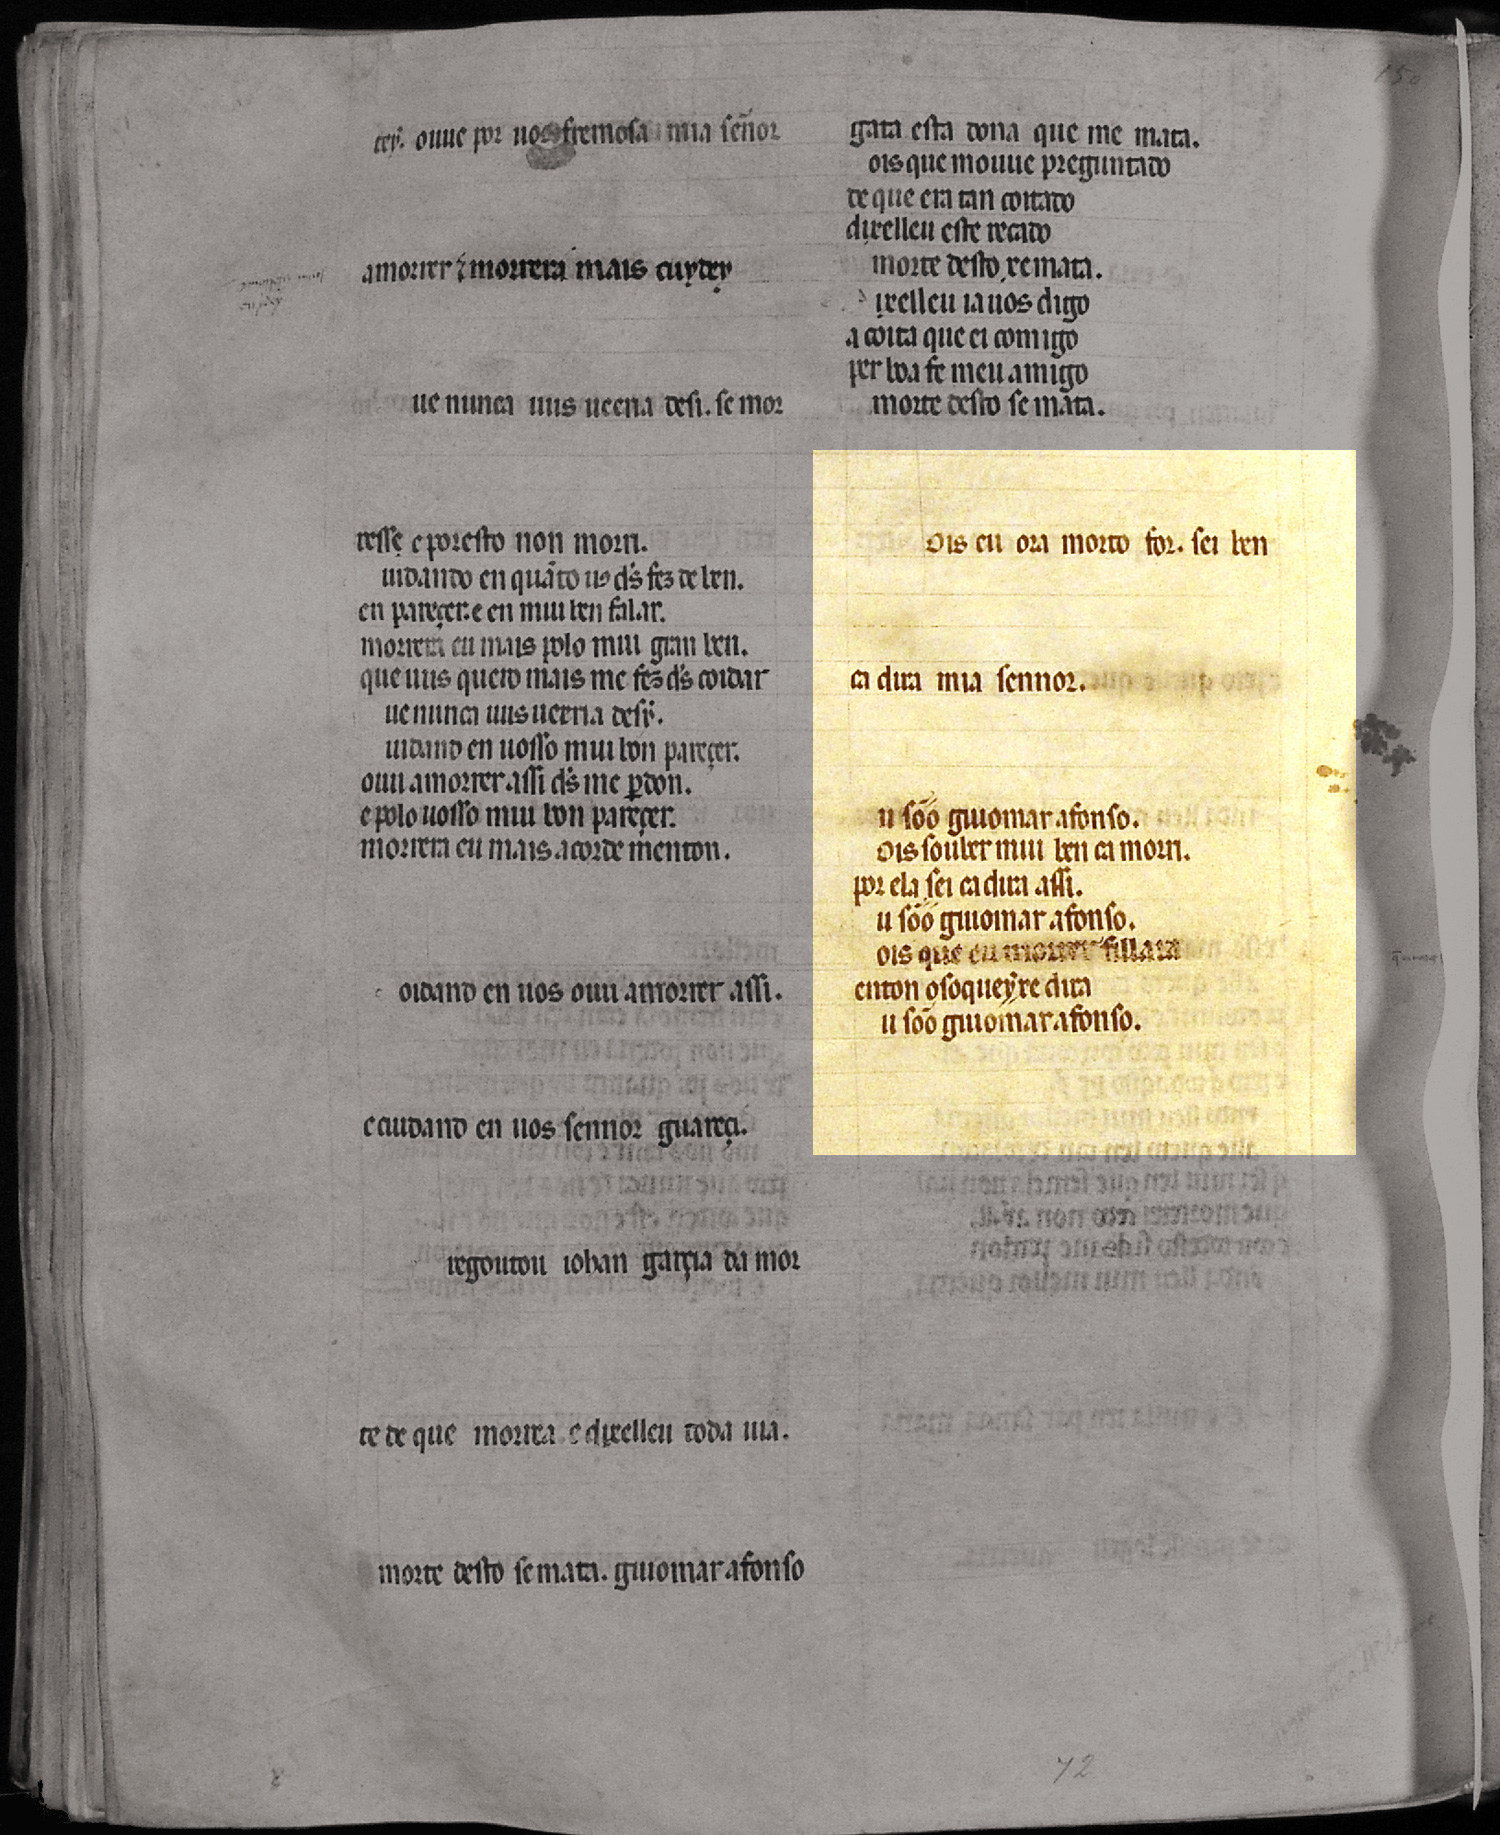 rey. ouue por uos fremosa mia señor
a morrer ⁊ morrera mais cuydey
ue nunca uus ueeria desi. se mor
resse e poresto non morri.
uidando en quãto uos d's fez de ben.
en pareçer. e en mui ben falar.
morrera eu mais polo mui gran ben.
que uus quero mais me fez d's coidar
ue nunca uus ueeria desy.
uidand en uosso mui bon pareçer.
oui a morrer assi d's me ꝑdon.
e polo uosso mui bon pareçer.
morrera eu mais acordei menton.
oidand en uos oui a morrer assi.
e cuidand en uos sennor guareçi.
regoutou iohan garçia da mor
te de que morria e dixelleu toda uia.
morte desto se mata. guiomar afonso
gata esta dona que me mata.
ois que mouue preguntado
de que era tan coitado
dixelleu este recado
morte desto xe mata.
ixelleu ia uos digo
a coita que ei comigo
per boa fe meu amigo
morte desto se mata.
ois eu ora morto for. sei ben
ca dira mia sennor.
u sõo guiomar afonso.
ois souber mui ben ca morri.
por ela sei ca dira assi.
u sõo guiomar afonso.
ois que eu morrer fillara
enton o soqueyxe dira
u sõo guiomar afonso.
72